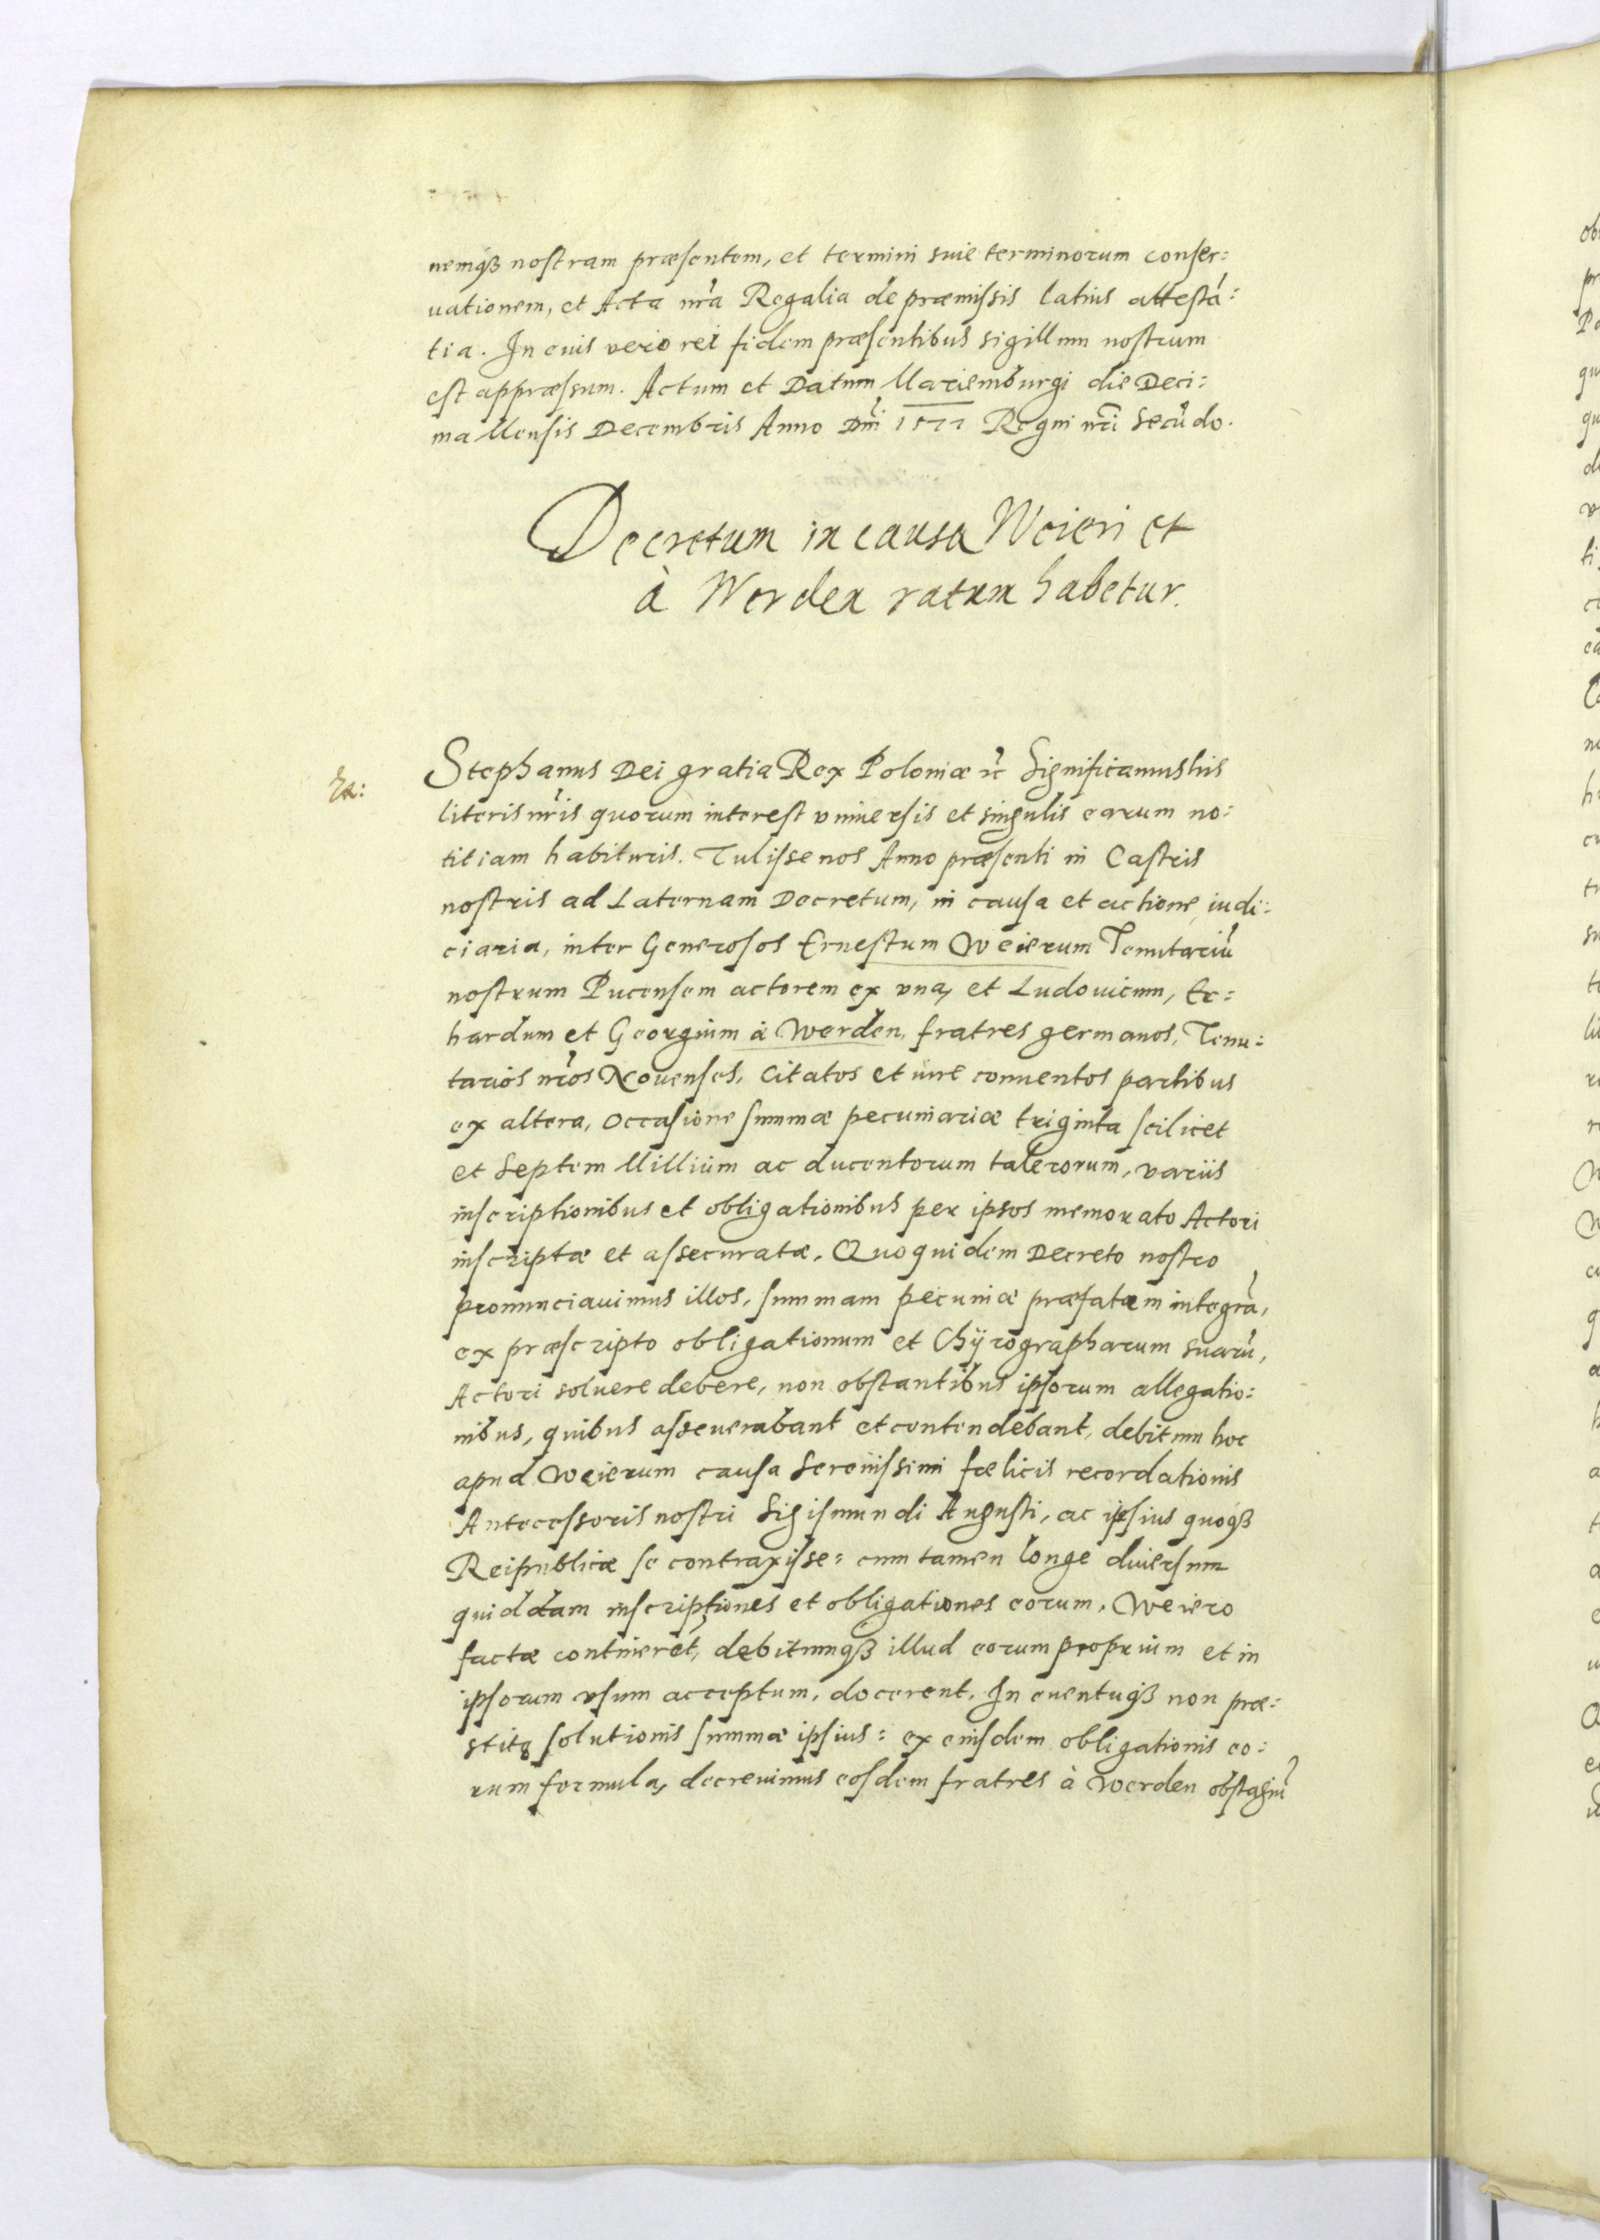 nemq₃ nostram præsentem, et termini suie terminorum conser:
uationem, et Acta nr̃a Regalia de præmissis latius attestã:
tia. In cuis vero rei fidem præsentibus sigillum nostrum
est appræssum. Actum et Datum Mariemburgi die Deci:
ma Mensis Decembris Anno Dñi 1577 Regni nr̃i secũdo.
Decretum in causa Weieri et
à Werden ratum habetur.
Stephanus Dei gratia Rex Poloniæ ꝛc Significamus his
literis nr̃is quorum interest vniuersis et singulis earum no:
titiam habituris. Tulisse nos Anno præsenti in Castris
nostris ad Laternam Decretum, in causa et actione iudi:
ciaria, inter Generosos Ernestum Weierum Tenutariũ
nostrum Pucensem actorem ex vna, et Ludouicum, Er:
hardum et Georgium à Werden, fratres germanos, Tenu:
tarios nr̃os Nouenses, Citatos et iure conuentos partibus
ex altera, Occasione summæ pecuniariæ triginta scilicet
et Septem Millium ac ducentorum talerorum, variis
inscriptionibus et obligationibus per ipsos memorato Actori
inscriptæ et assecuratæ. Quo quidem Decreto nostro
pronunciauimus illos, summam pecuniæ præfatam integrã,
ex præscripto obligationum et Chÿrographarum suarũ,
Actori soluere debere, non obstantibus ipsorum allegatio:
nibus, quibus asseuerabant et contendebant, debitum hoc
apud Weierum causa Serenissimi fœlicis recordationis
Antecessoris nostri Sigismundi Augusti, ac ipsius quoq₃
Reipublicæ se contraxisse: cum tamen longe diuersum
quiddam inscriptiones et obligationes eorum, Weiero
factæ continerẽt, debitumq₃ illud eorum proprium et in
ipsorum vsum acceptum, docerent. In euentuq₃ non præ:
stitę solutionis summæ ipsius: ex eiusdem obligationis eo:
rum formula, decreuimus eosdem fratres à Werden obstagiũ